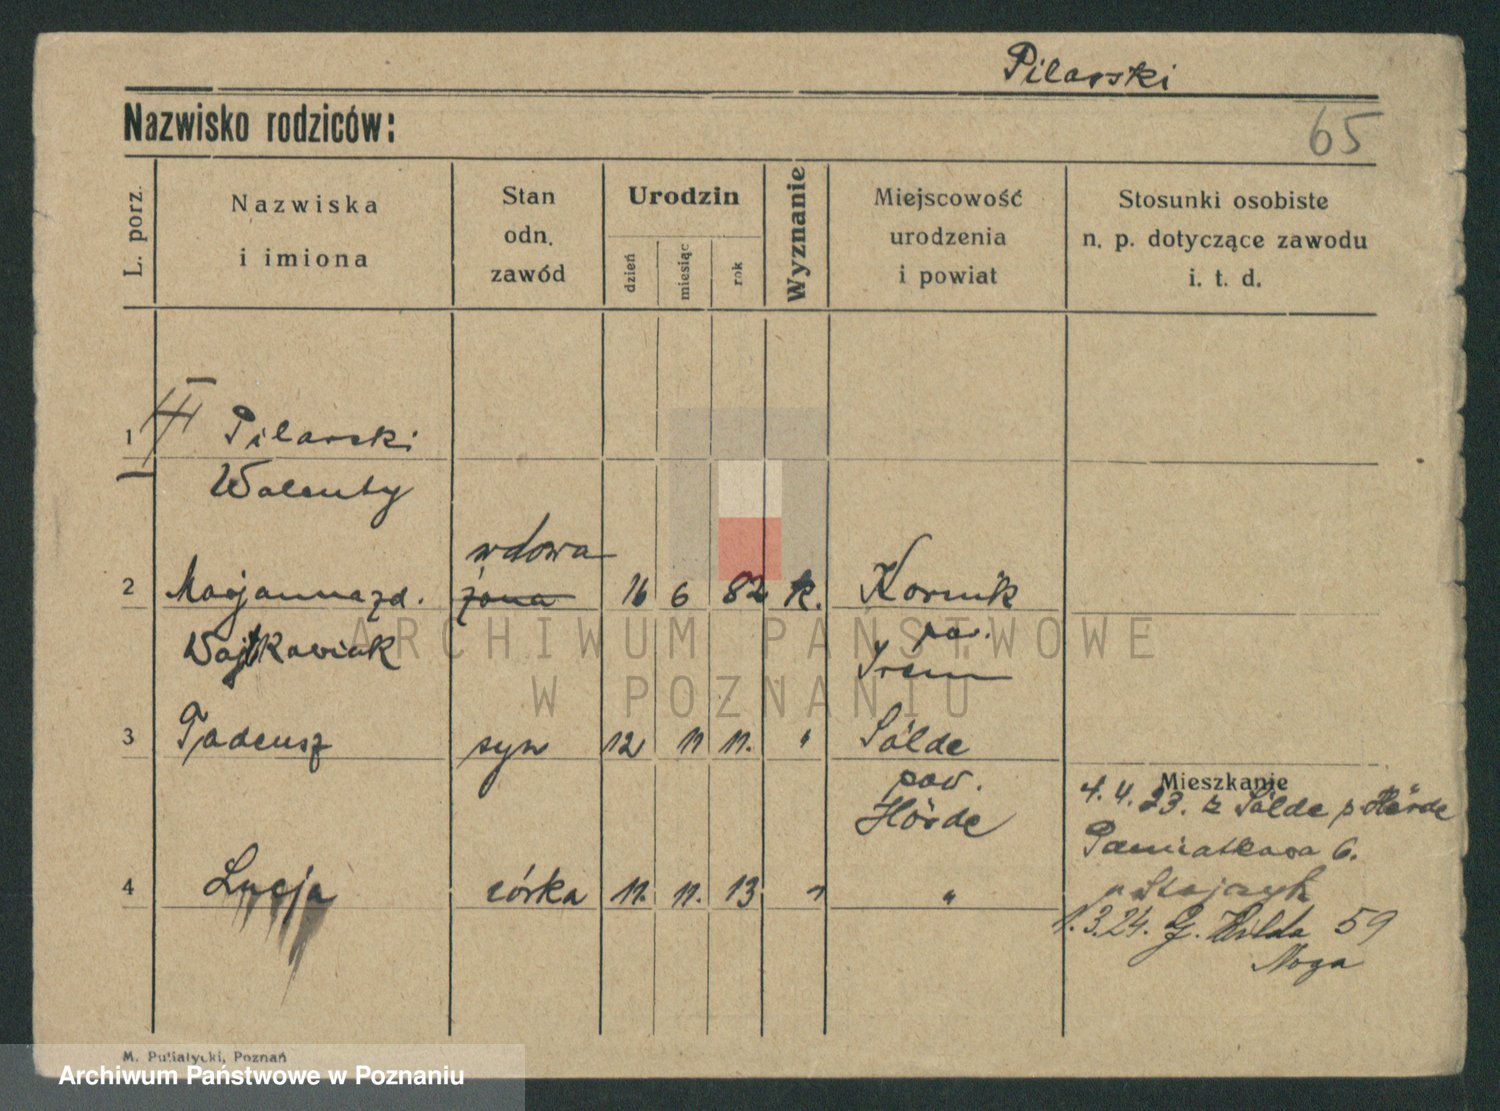 Pilarski
Nazwisko rodziców:
65
L. porz.
Nazwiska
i imiona
Stan
odn.
zawód
Urodzin
dzień
miesiąc
rok
Wyznanie
Miejscowość
urodzenia
i powiat
Stosunki osobiste
n. p. dotyczące zawodu
i. t. d.
1 Pilarski
Walenty
wdowa
2 Marjanna zd. żona 16 6 82 k. Kórnik
Wojtkowiak pow.
Śrem
3 Tadeusz syn 12 11 11. " Sölde
pow.
Hörde
Mieszkanie
4. 4. 23. z Sölde p. Hörde
Pamiatkowa 6.
u Stajczyk
4 Lucja córka 11. 11. 13 " "
1.3.24. G. Wilda 59
Noga
ARCHIWUM PAŃSTWOWE
W POZNANIU
M. Putiatycki, Poznań
Archiwum Państwowe w Poznaniu